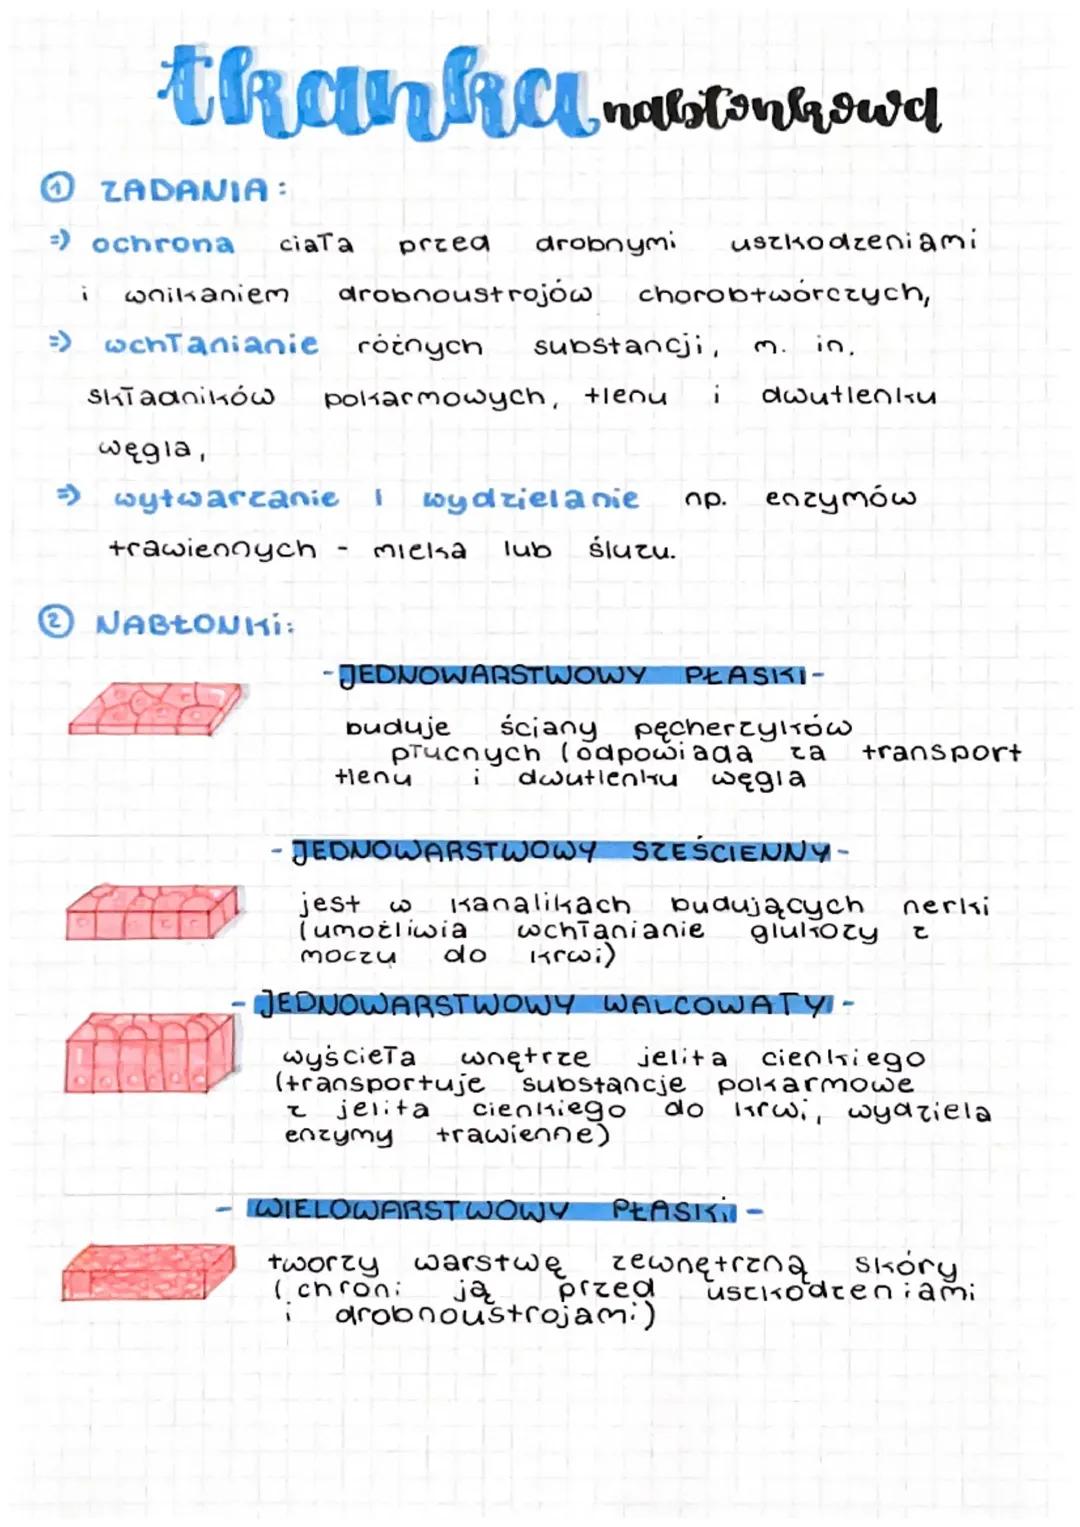 tkanka nabłonkowa
① ZADANIA:
⇒ ochrona ciała przed drobnymi uszkodzeniami
i wnikaniem drobnoustrojów chorobtwórczych,
⇒ wchłanianie różnych substancji, m. in.
składników pokarmowych, tlenu i dwutlenku
węgla,
⇒ wytwarzanie i wydzielanie np. enzymów
trawiennych - mleka lub śluzu.
② NABŁONKi:
- JEDNOWARSTWOWY PŁASKI -
buduje ściany pęcherzyków
płucnych (odpowiada za transport
tlenu i dwutlenku węgla
- JEDNOWARSTWOWY SZEŚCIENNY -
jest w kanalikach budujących nerki
(umożliwia wchłanianie glukozy z
moczu do krwi)
- JEDNOWARSTWOWY WALCOWATY -
wyścieła wnętrze jelita cienkiego
(transportuje substancje pokarmowe
z jelita cienkiego do krwi, wydziela
enzymy trawienne)
- WIELOWARSTWOWY PŁASKi -
tworzy warstwę zewnętrzną skóry
(chroni ją przed uszkodzeniami
i drobnoustrojami)